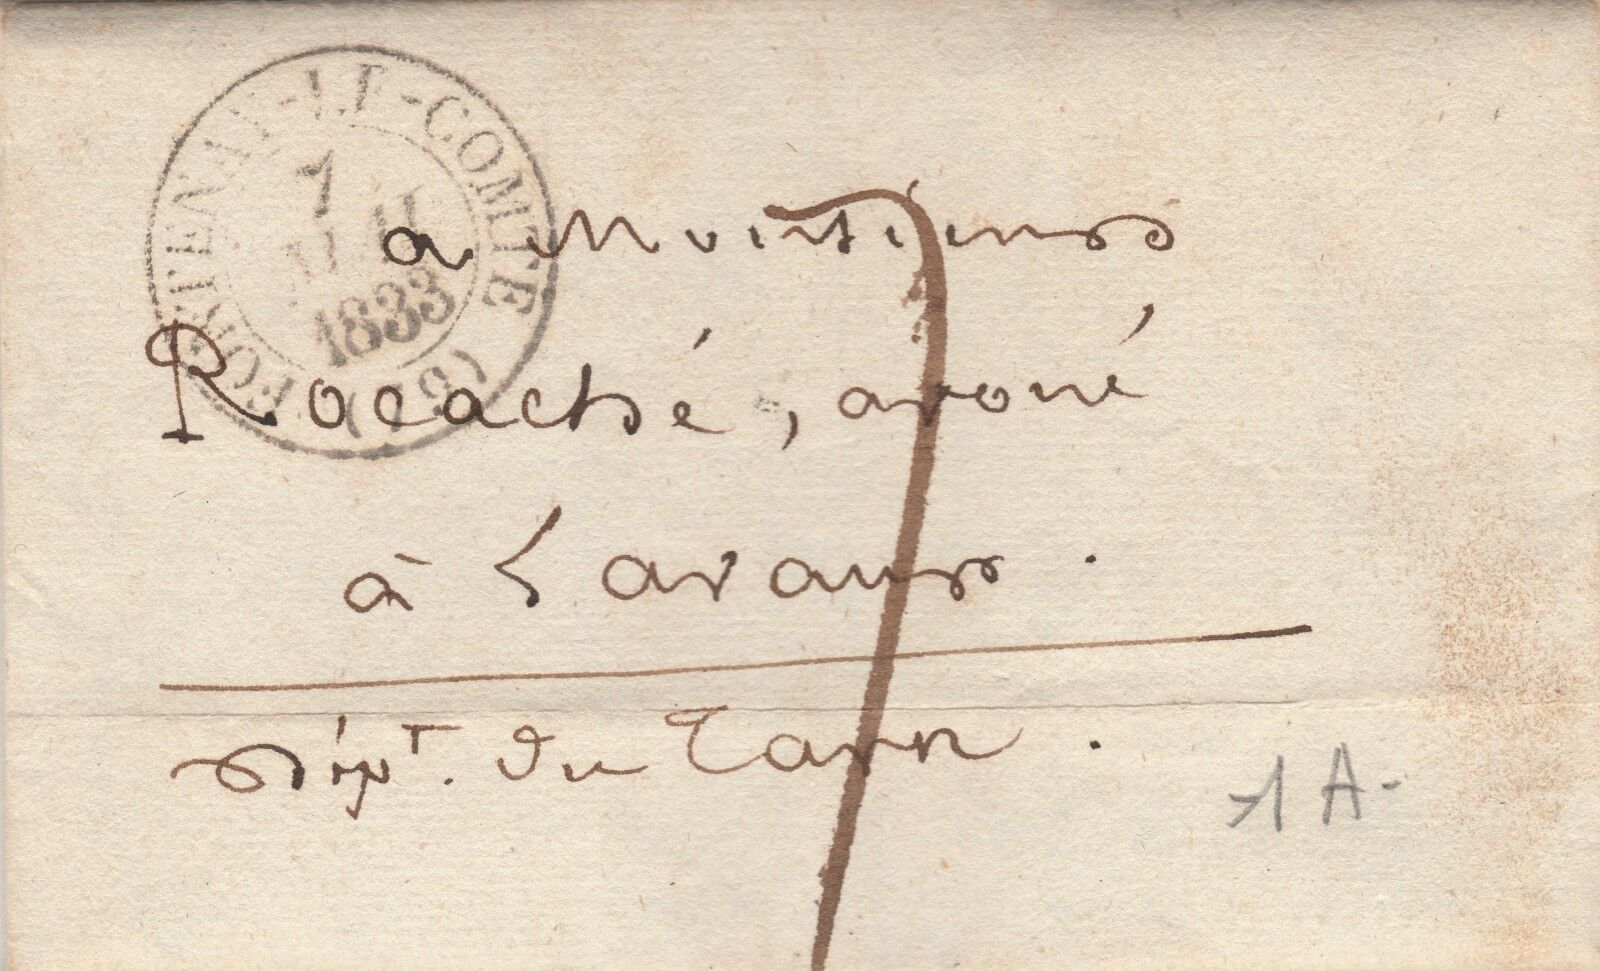 FONTENAY-LE-COMTE (79)
7
1833
a Monsieur
Rocaché, avoué
à Lavaur .
dép.T du Tarn .
7
1 A-